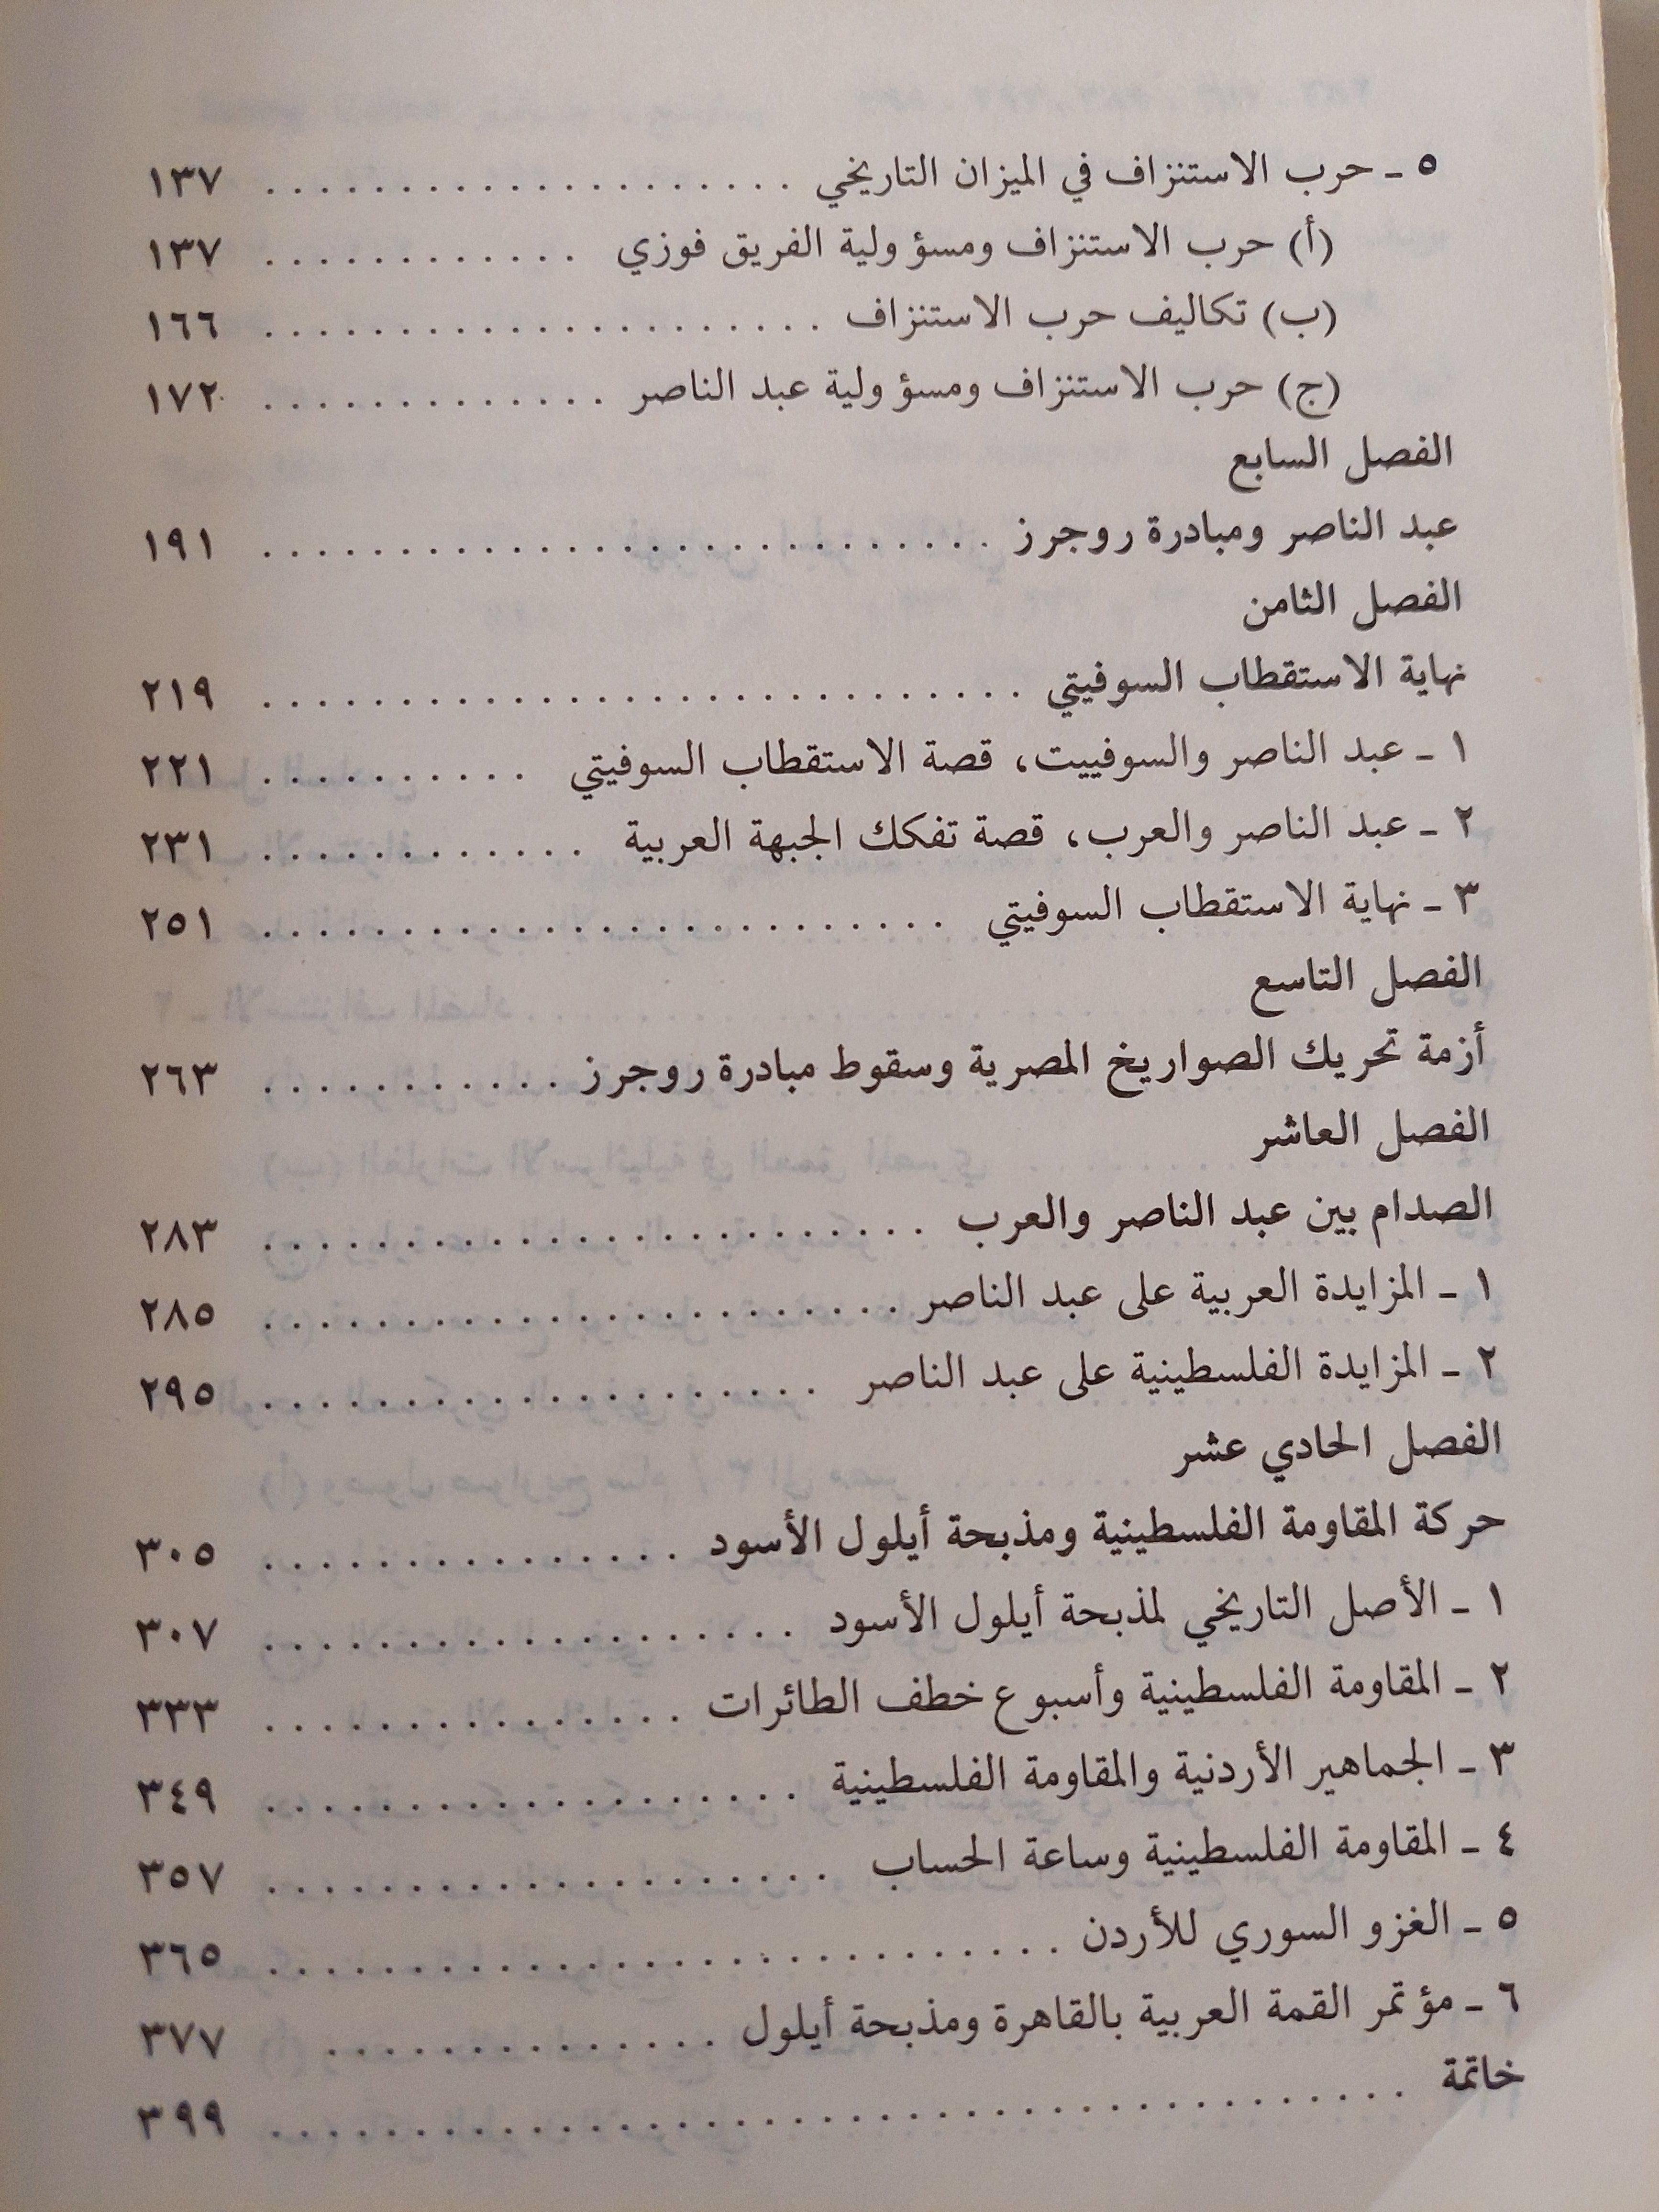 ٥ ـ حرب الاستنزاف في الميزان التاريخي . . . . . . . . . . . . . . . . . . . . ١٣٧
(أ) حرب الاستنزاف ومسؤولية الفريق فوزي . . . . . . . . . . . . ١٣٧
(ب) تكاليف حرب الاستنزاف . . . . . . . . . . . . . . . . . . . . . ١٦٦
(ج) حرب الاستنزاف ومسؤولية عبد الناصر . . . . . . . . . . . . . ١٧٢
الفصل السابع
عبد الناصر ومبادرة روجرز . . . . . . . . . . . . . . . . . . . . . . . . . . . ١٩١
الفصل الثامن
نهاية الاستقطاب السوفيتي . . . . . . . . . . . . . . . . . . . . . . . . . . . . ٢١٩
١ ـ عبد الناصر والسوفييت، قصة الاستقطاب السوفيتي . . . . . . . . . . ٢٢١
٢ ـ عبد الناصر والعرب، قصة تفكك الجبهة العربية . . . . . . . . . . . . ٢٣١
٣ ـ نهاية الاستقطاب السوفيتي . . . . . . . . . . . . . . . . . . . . . . . . . ٢٥١
الفصل التاسع
أزمة تحريك الصواريخ المصرية وسقوط مبادرة روجرز . . . . . . . . . . . ٢٦٣
الفصل العاشر
الصدام بين عبد الناصر والعرب . . . . . . . . . . . . . . . . . . . . . . . . ٢٨٣
١ ـ المزايدة العربية على عبد الناصر . . . . . . . . . . . . . . . . . . . . . . . ٢٨٥
٢ ـ المزايدة الفلسطينية على عبد الناصر . . . . . . . . . . . . . . . . . . . . ٢٩٥
الفصل الحادي عشر
حركة المقاومة الفلسطينية ومذبحة أيلول الأسود . . . . . . . . . . . . . . . ٣٠٥
١ ـ الأصل التاريخي لمذبحة أيلول الأسود . . . . . . . . . . . . . . . . . . . ٣٠٧
٢ ـ المقاومة الفلسطينية وأسبوع خطف الطائرات . . . . . . . . . . . . . . . ٣٣٣
٣ ـ الجماهير الأردنية والمقاومة الفلسطينية . . . . . . . . . . . . . . . . . . . ٣٤٩
٤ ـ المقاومة الفلسطينية وساعة الحساب . . . . . . . . . . . . . . . . . . . . ٣٥٧
٥ ـ الغزو السوري للأردن . . . . . . . . . . . . . . . . . . . . . . . . . . . . ٣٦٥
٦ ـ مؤتمر القمة العربية بالقاهرة ومذبحة أيلول . . . . . . . . . . . . . . ٣٧٧
خاتمة . . . . . . . . . . . . . . . . . . . . . . . . . . . . . . . . . . . . . . . . ٣٩٩